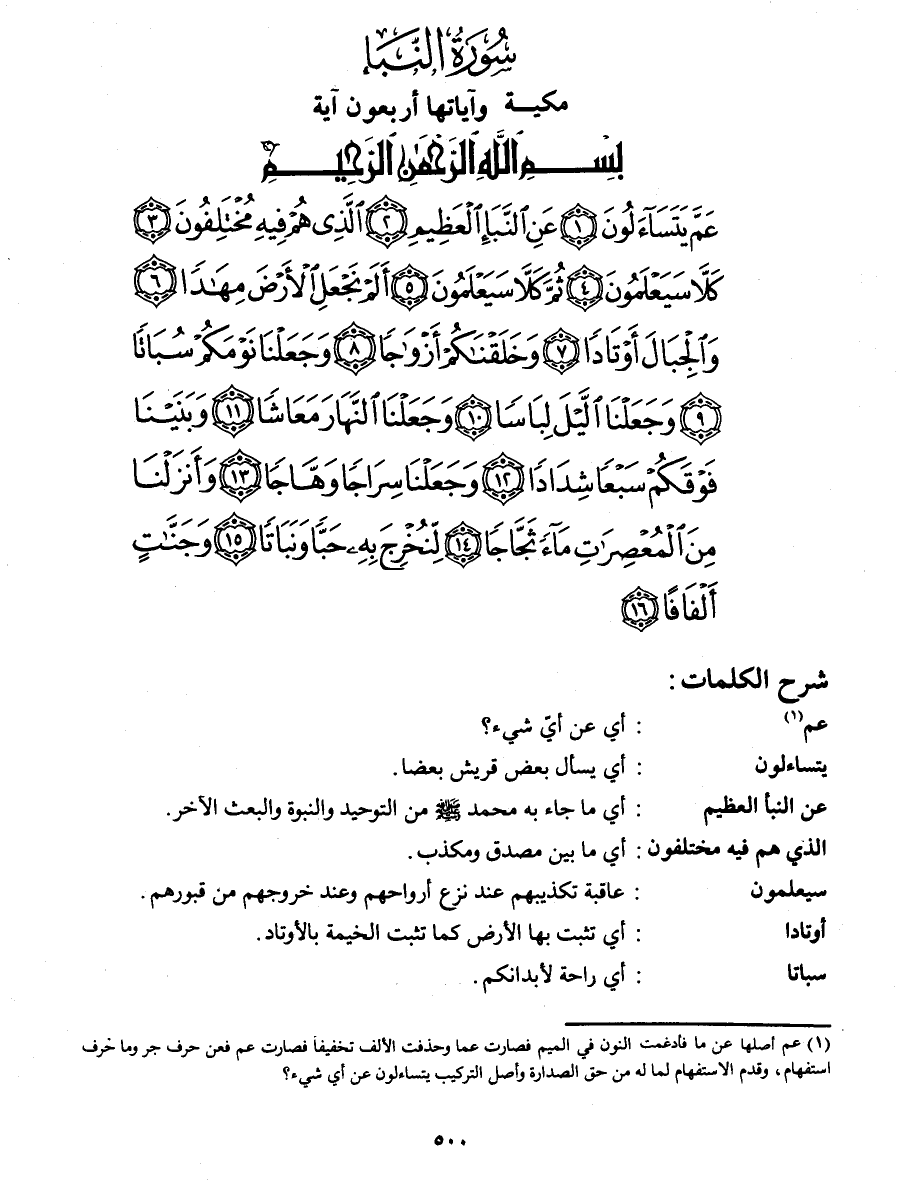 سُورَةُ النَّبَإِ
مكيـة وآياتها أربعون آية
بِسْمِ اللَّهِ الرَّحْمَٰنِ الرَّحِيمِ
عَمَّ يَتَسَآءَلُونَ ﴿١﴾ عَنِ ٱلنَّبَإِ ٱلْعَظِيمِ ﴿٢﴾ ٱلَّذِى هُمْ فِيهِ مُخْتَلِفُونَ ﴿٣﴾
كَلَّا سَيَعْلَمُونَ ﴿٤﴾ ثُمَّ كَلَّا سَيَعْلَمُونَ ﴿٥﴾ أَلَمْ نَجْعَلِ ٱلْأَرْضَ مِهَٰدًا ﴿٦﴾
وَٱلْجِبَالَ أَوْتَادًا ﴿٧﴾ وَخَلَقْنَٰكُمْ أَزْوَٰجًا ﴿٨﴾ وَجَعَلْنَا نَوْمَكُمْ سُبَاتًا
﴿٩﴾ وَجَعَلْنَا ٱلَّيْلَ لِبَاسًا ﴿١٠﴾ وَجَعَلْنَا ٱلنَّهَارَ مَعَاشًا ﴿١١﴾ وَبَنَيْنَا
فَوْقَكُمْ سَبْعًا شِدَادًا ﴿١٢﴾ وَجَعَلْنَا سِرَاجًا وَهَّاجًا ﴿١٣﴾ وَأَنزَلْنَا
مِنَ ٱلْمُعْصِرَٰتِ مَآءً ثَجَّاجًا ﴿١٤﴾ لِّنُخْرِجَ بِهِۦ حَبًّا وَنَبَاتًا ﴿١٥﴾ وَجَنَّٰتٍ
أَلْفَافًا ﴿١٦﴾
شرح الكلمات :
عم(١) : أي عن أيّ شيء؟
يتساءلون : أي يسأل بعض قريش بعضا.
عن النبأ العظيم : أي ما جاء به محمد ﷺ من التوحيد والنبوة والبعث الآخر.
الذي هم فيه مختلفون : أي ما بين مصدق ومكذب.
سيعلمون : عاقبة تكذيبهم عند نزع أرواحهم وعند خروجهم من قبورهم.
أوتادا : أي تثبت بها الأرض كما تثبت الخيمة بالأوتاد.
سباتا : أي راحة لأبدانكم.
(١) عم أصلها عن ما فأدغمت النون في الميم فصارت عما وحذفت الألف تخفيفاً فصارت عم فعن حرف جر وما حرف
استفهام، وقدم الاستفهام لما له من حق الصدارة وأصل التركيب يتساءلون عن أي شيء؟
٥٠٠